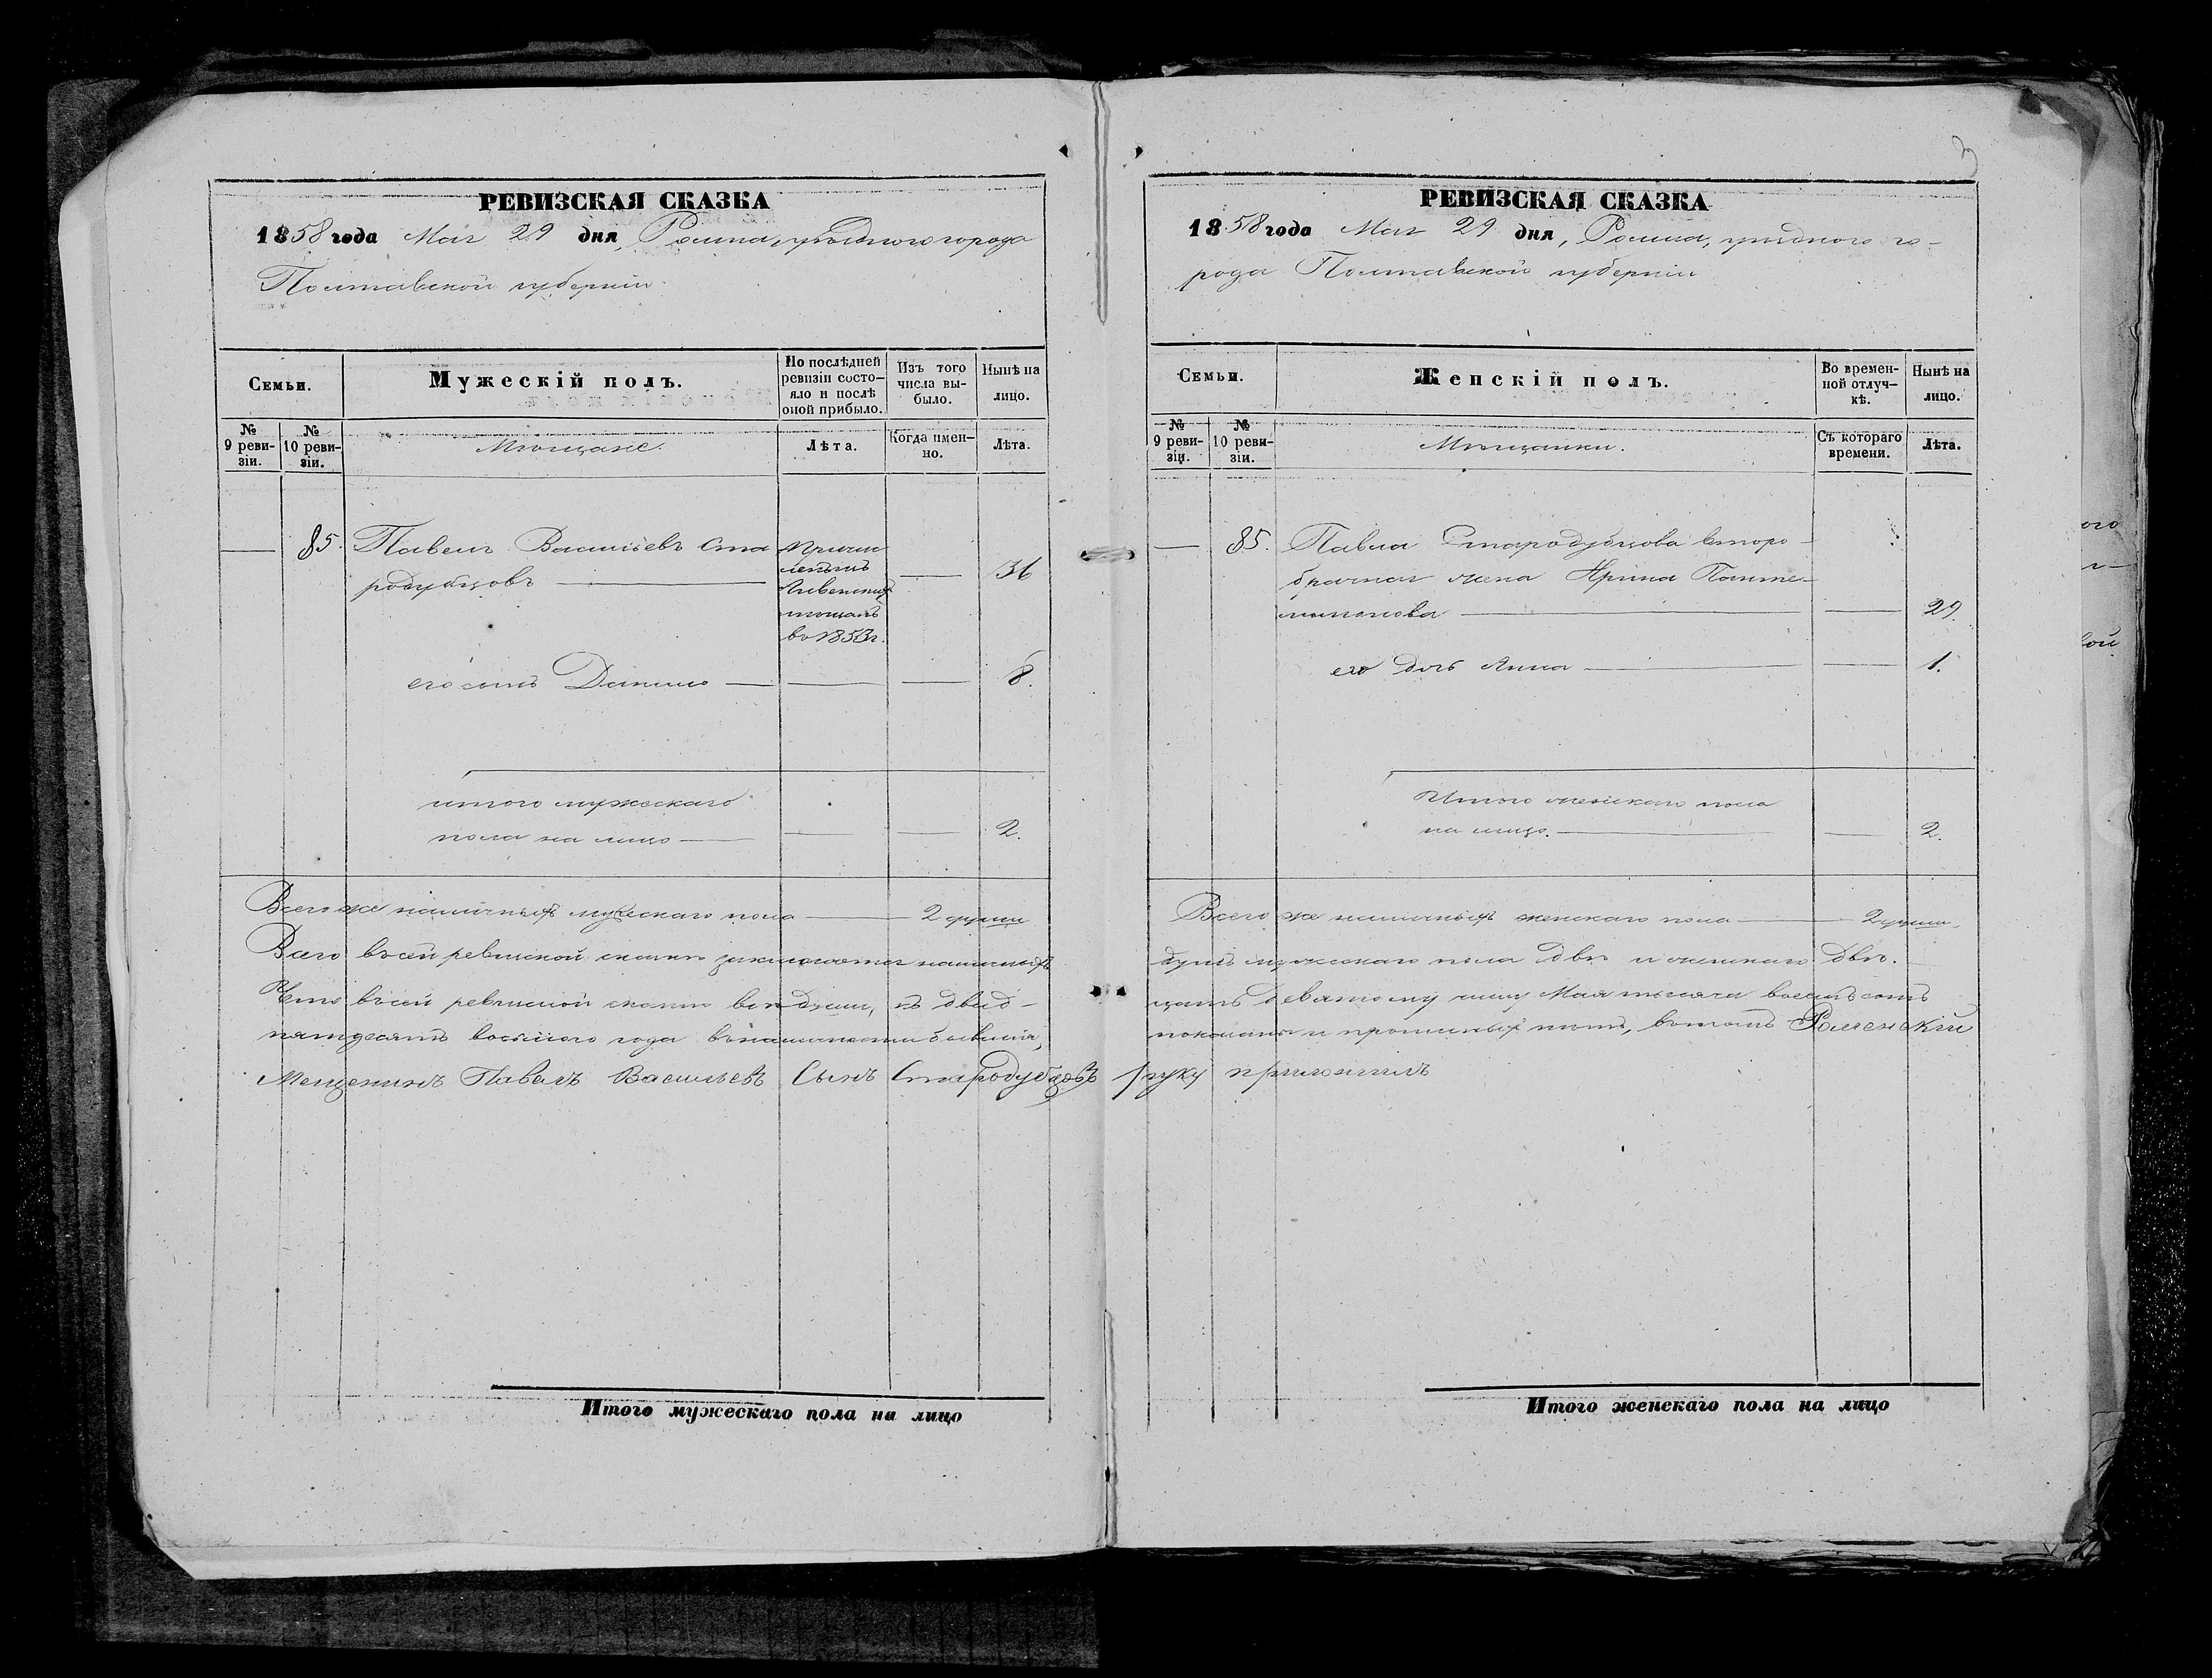 РЕВИЗСКАЯ СКАЗКА
1858 года Мая 29 дня, Ромна, уѣзднаго города
Полтавской губерніи
Семьи.
Мужескій полъ.
По послѣдней ревизіи состо-
яло и послѣ
оной прибыло.
Изъ того
числа вы-
было.
Нынѣ на
лицо.
№
9 реви-
зіи.
№
10 реви-
зіи.
Мѣщане.
Лѣта.
Когда имен-
но.
Лѣта.
85. Павелъ Васильевъ Ста
родубцовъ
Причи
сленъ изъ
мѣщанъ
въ 1853 г.
36
его сынъ Данило 8.
итого мужескаго
пола на лицо 2.
Всего же наличныхъ мужескаго пола 2 души
Всего въ сей ревизской сказкѣ заключается наличныхъ
Что въ сей ревизской сказкѣ всѣ души, къ двад-
пятдесятъ восьмого года въ наличности бывшія,
Мещенинъ Павелъ Васильевъ Сынъ Стародубцовъ
Итого мужескаго пола на лицо
3
РЕВИЗСКАЯ СКАЗКА
1858 года Мая 29 дня, Ромна, уѣзднаго го-
рода Полтавской губерніи
Семьи.
Женскій полъ.
Во времен-
ной отлуч-
кѣ.
Нынѣ на
лицо.
№
9 реви-
зіи.
№
10 реви-
зіи.
Мѣщанки.
Съ котораго
времени.
Лѣта.
85. Павла Стародубцова второ-
брачная жена Ирина Панте-
лимонова 29.
его дочь Анна 1.
Итого женскаго пола
на лицо. 2.
Всего же наличныхъ женскаго пола 2 души.
душъ мужескаго пола двѣ и женскаго двѣ.
цать девятому числу Мая тысяча восемьсотъ
показаны и прописныхъ нѣтъ, въ томъ Роменскій
руку приложилъ
Итого женскаго пола на лицо